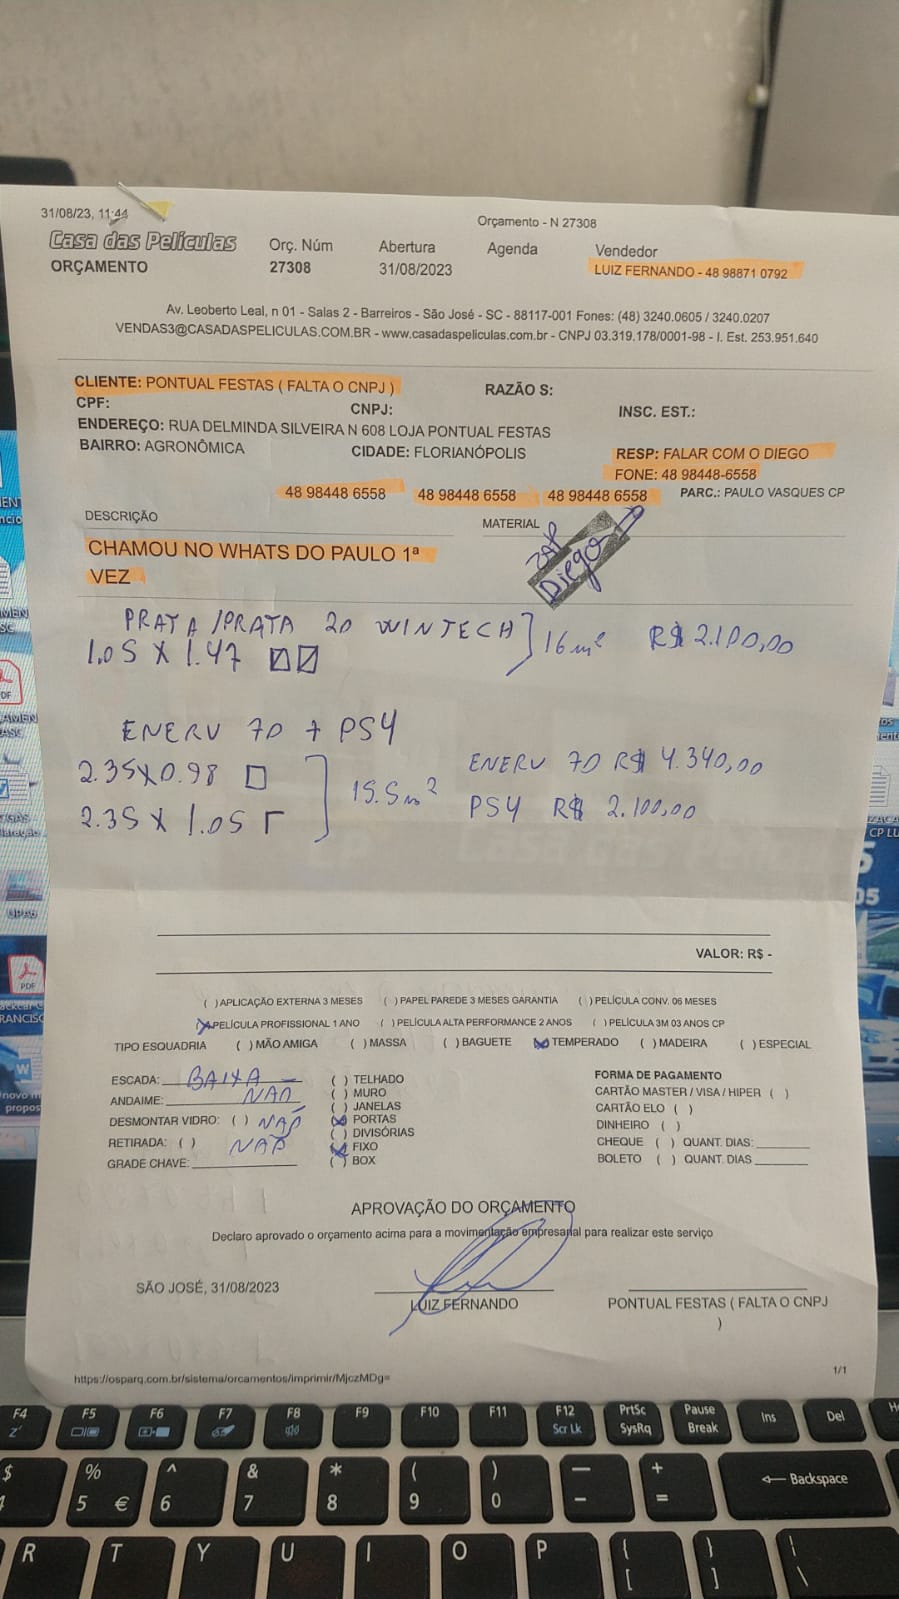 31/08/23, 11:44
Orçamento - N 27308
Casa das Películas Orç. Núm Abertura Agenda Vendedor
ORÇAMENTO 27308 31/08/2023 LUIZ FERNANDO - 48 98871 0792
Av. Leoberto Leal, n 01 - Salas 2 - Barreiros - São José - SC - 88117-001 Fones: (48) 3240.0605 / 3240.0207
VENDAS3@CASADASPELICULAS.COM.BR - www.casadaspeliculas.com.br - CNPJ 03.319.178/0001-98 - I. Est. 253.951.640
CLIENTE: PONTUAL FESTAS ( FALTA O CNPJ ) RAZÃO S:
CPF: CNPJ: INSC. EST.:
ENDEREÇO: RUA DELMINDA SILVEIRA N 608 LOJA PONTUAL FESTAS
BAIRRO: AGRONÔMICA CIDADE: FLORIANÓPOLIS RESP: FALAR COM O DIEGO
FONE: 48 98448-6558
48 98448 6558 48 98448 6558 48 98448 6558 PARC.: PAULO VASQUES CP
DESCRIÇÃO MATERIAL
CHAMOU NO WHATS DO PAULO 1ª
VEZ
ZAP
Diego
PRATA/PRATA 20 WINTECH 16m² R$ 2.100,00
1.05 X 1.47
ENERV 70 + PS4
2.35X0.98 15.5m² ENERV 70 R$ 4.340,00
2.35 X 1.05 PS4 R$ 2.100,00
VALOR: R$ -
( ) APLICAÇÃO EXTERNA 3 MESES ( ) PAPEL PAREDE 3 MESES GARANTIA ( ) PELÍCULA CONV. 06 MESES
(X) PELÍCULA PROFISSIONAL 1 ANO ( ) PELÍCULA ALTA PERFORMANCE 2 ANOS ( ) PELÍCULA 3M 03 ANOS CP
TIPO ESQUADRIA ( ) MÃO AMIGA ( ) MASSA ( ) BAGUETE (X) TEMPERADO ( ) MADEIRA ( ) ESPECIAL
ESCADA: BAIXA
ANDAIME: NAO
DESMONTAR VIDRO: ( ) NAO
RETIRADA: ( ) NAO
GRADE CHAVE:
( ) TELHADO
( ) MURO
( ) JANELAS
(X) PORTAS
( ) DIVISÓRIAS
(X) FIXO
( ) BOX
FORMA DE PAGAMENTO
CARTÃO MASTER / VISA / HIPER ( )
CARTÃO ELO ( )
DINHEIRO ( )
CHEQUE ( ) QUANT. DIAS:
BOLETO ( ) QUANT. DIAS
APROVAÇÃO DO ORÇAMENTO
Declaro aprovado o orçamento acima para a movimentação empresarial para realizar este serviço
SÃO JOSÉ, 31/08/2023
LUIZ FERNANDO
PONTUAL FESTAS ( FALTA O CNPJ
)
https://osparq.com.br/sistema/orcamentos/imprimir/MjczMDg=
1/1
F4 F5 F6 F7 F8 F9 F10 F11 F12 PrtSc Pause Ins Del
Scr Lk SysRq Break
$ % ^ & * ( ) — + Backspace
5 € 6 7 8 9 0 - =
R T Y U I O P { } |
[ ] \